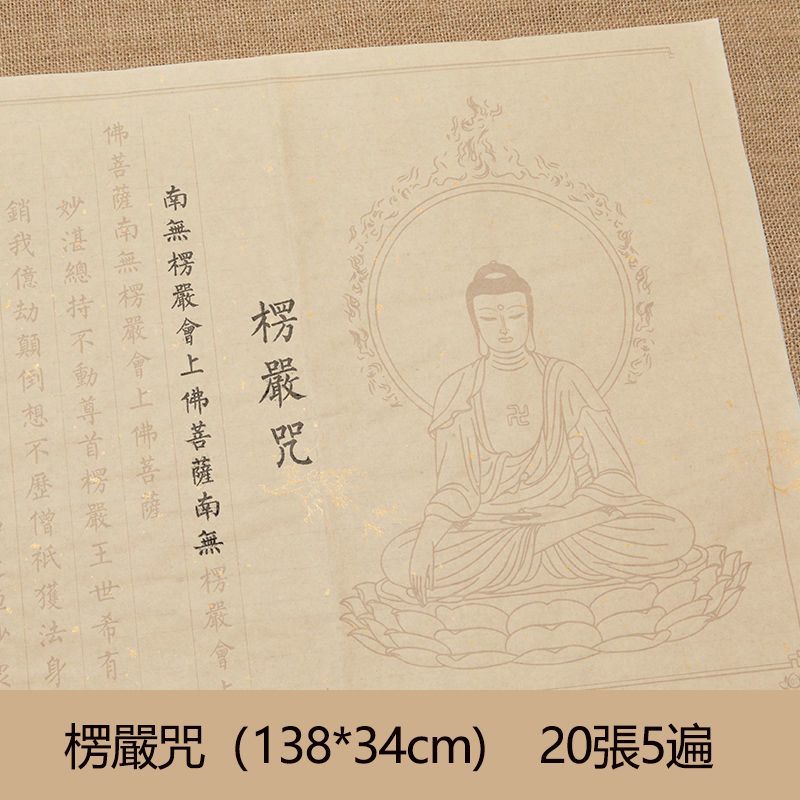 楞嚴咒
南無楞嚴會上佛菩薩南無楞嚴會上
佛菩薩南無楞嚴會上佛菩薩
妙湛總持不動尊首楞嚴王世希有
銷我億劫顛倒想不歷僧祇獲法身
楞嚴咒（138*34cm） 20張5遍